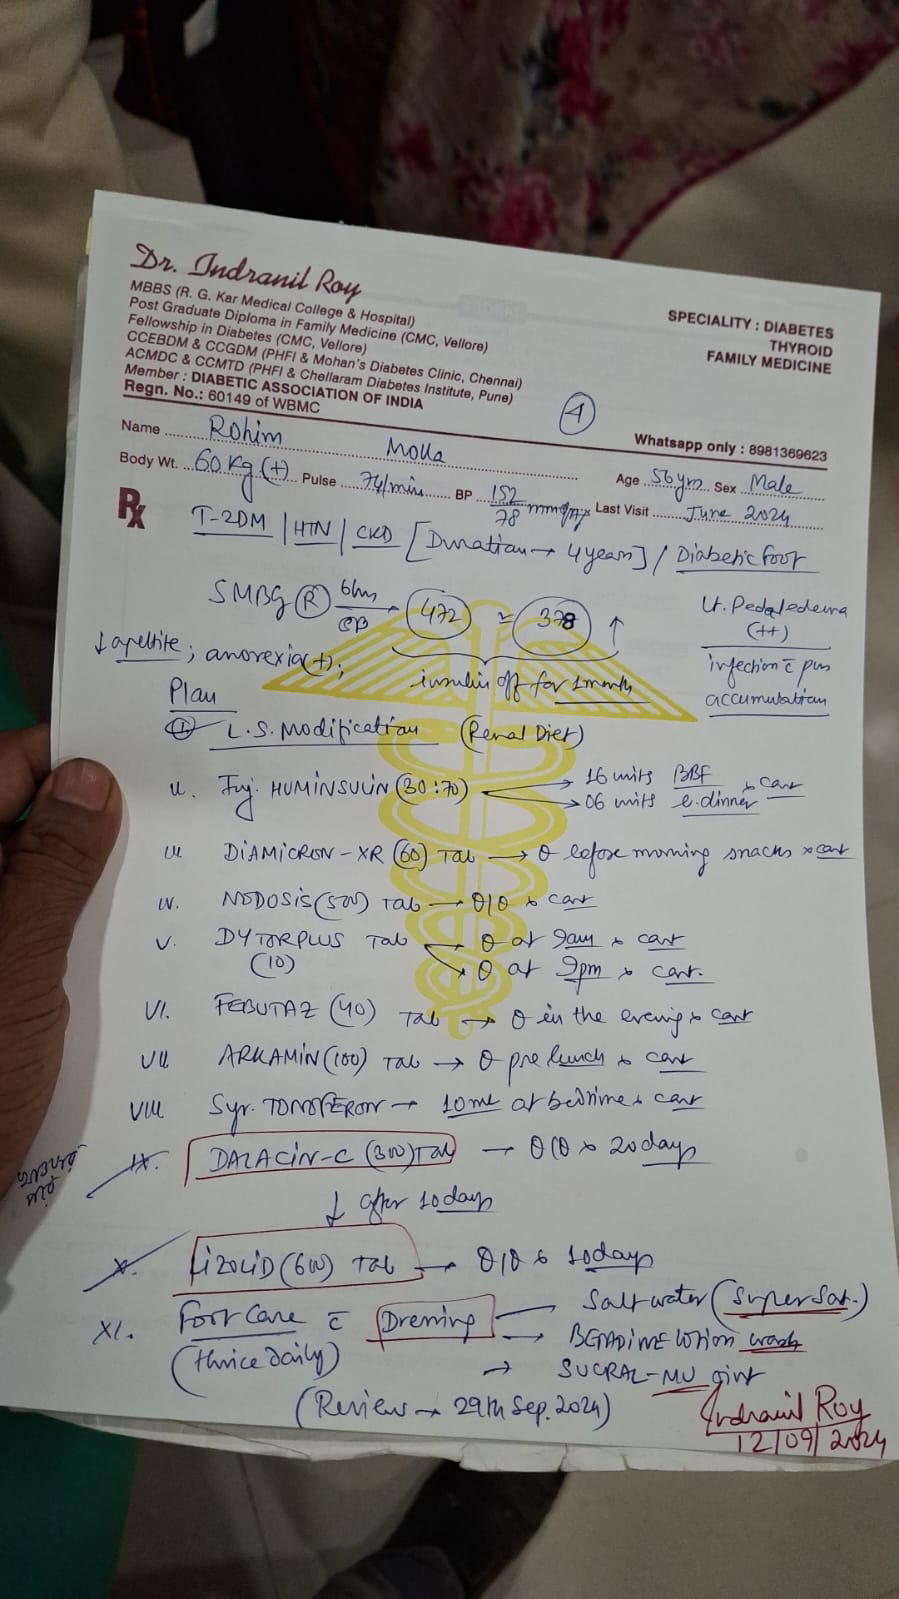 Dr. Indranil Roy
MBBS (R. G. Kar Medical College & Hospital)
Post Graduate Diploma in Family Medicine (CMC, Vellore)
Fellowship in Diabetes (CMC, Vellore)
CCEBDM & CCGDM (PHFI & Mohan's Diabetes Clinic, Chennai)
ACMDC & CCMTD (PHFI & Chellaram Diabetes Institute, Pune)
Member : DIABETIC ASSOCIATION OF INDIA
Regn. No.: 60149 of WBMC
SPECIALITY : DIABETES
THYROID
FAMILY MEDICINE
Whatsapp only : 8981369623
Name Rohim Molla
Age 56yrs Sex Male
Body Wt. 60 kg (+) Pulse 74/min BP 152/78 mmHg Last Visit June 2024
Rx
T-2DM | HTN | CKD [Duration → 4 years] / Diabetic foot
SMBG (R) → 472 378 ↑
insulin off for 1 month
↓ apetite; anorexia (+);
Lt. Pedal edema
(++)
infection c̄ pus
accumulation
Plan
L.S. Modification (Renal Diet)
II. Inj. HUMINSULIN (30:70) → 16 units BBF
→ 06 units dinner x cont
III DIAMICRON-XR (60) Tab → before morning snacks x cont
IV. NODOSIS (500) Tab → x cont
V. DYTORPLUS Tab → at 9am x cont
(10) at 9pm x cont.
VI. FEBUTAZ (40) Tab → in the evening x cont
VII ARKAMIN (100) Tab → pre lunch x cont
VIII Syr. TONOFERON → 10ml at bedtime x cont
IX. DALACIN-C (300) Tab → x 20 days
↓ after 10 days
X. LIZOLID (600) Tab → x 10 days
XI. Foot Care c̄ Dressing Salt water (Super Sat.)
(thrice daily) → BETADINE lotion wash
→ SUCRAL-MU oint
(Review → 29th Sep. 2024)
Indranil Roy
12/09/2024